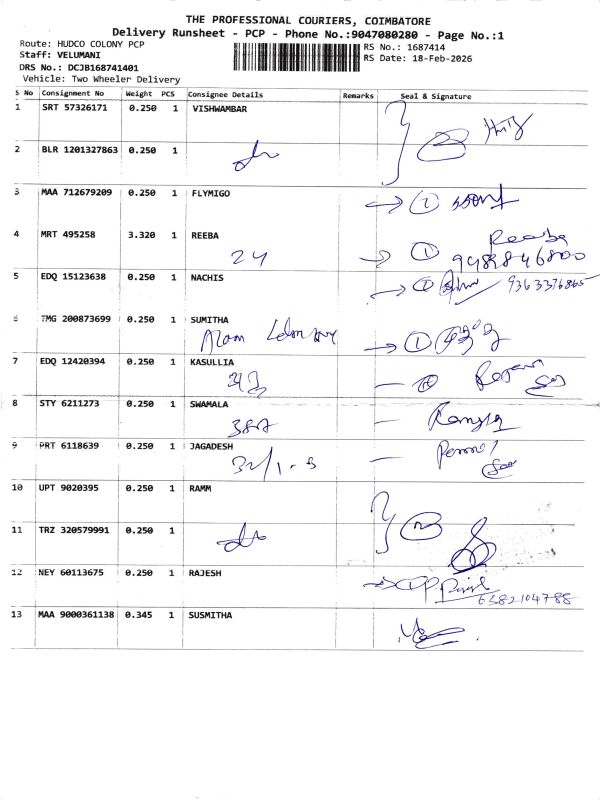 THE PROFESSIONAL COURIERS, COIMBATORE
Delivery Runsheet - PCP - Phone No.:9047080280 - Page No.:1
Route: HUDCO COLONY PCP
RS No.: 1687414
Staff: VELUMANI
RS Date: 18-Feb-2026
DRS No.: DCJB168741401
Vehicle: Two Wheeler Delivery
S No Consignment No Weight PCS Consignee Details Remarks Seal & Signature
1 SRT 57326171 0.250 1 VISHWAMBAR
2 BLR 1201327863 0.250 1
3 MAA 712679209 0.250 1 FLYMIGO
1
4 MRT 495258 3.320 1 REEBA
Reeba
24 1
5 EDQ 15123638 0.250 1 NACHIS
1 9363376865
6 TMG 200873699 0.250 1 SUMITHA
1
7 EDQ 12420394 0.250 1 KASULLIA
8 STY 6211273 0.250 1 SWAMALA
9 PRT 6118639 0.250 1 JAGADESH
10 UPT 9020395 0.250 1 RAMM
11 TRZ 320579991 0.250 1
12 NEY 60113675 0.250 1 RAJESH
6382104788
13 MAA 9000361138 0.345 1 SUSMITHA